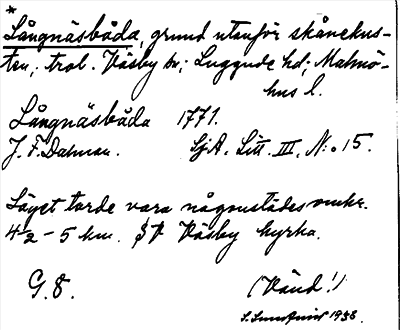 *
Långnäsbåda, grund utanför skånekus-
ten; trol. Väsby sn; Luggude hd; Malmö-
hus l.
Långnäsbåda 1771.
J. F. Dalman. SjA. Litt. III, N:o 15.
Läget torde vara någonstädes omkr.
4½ - 5 km. SV Väsby kyrka.
G. 8. (Vänd!)
1938